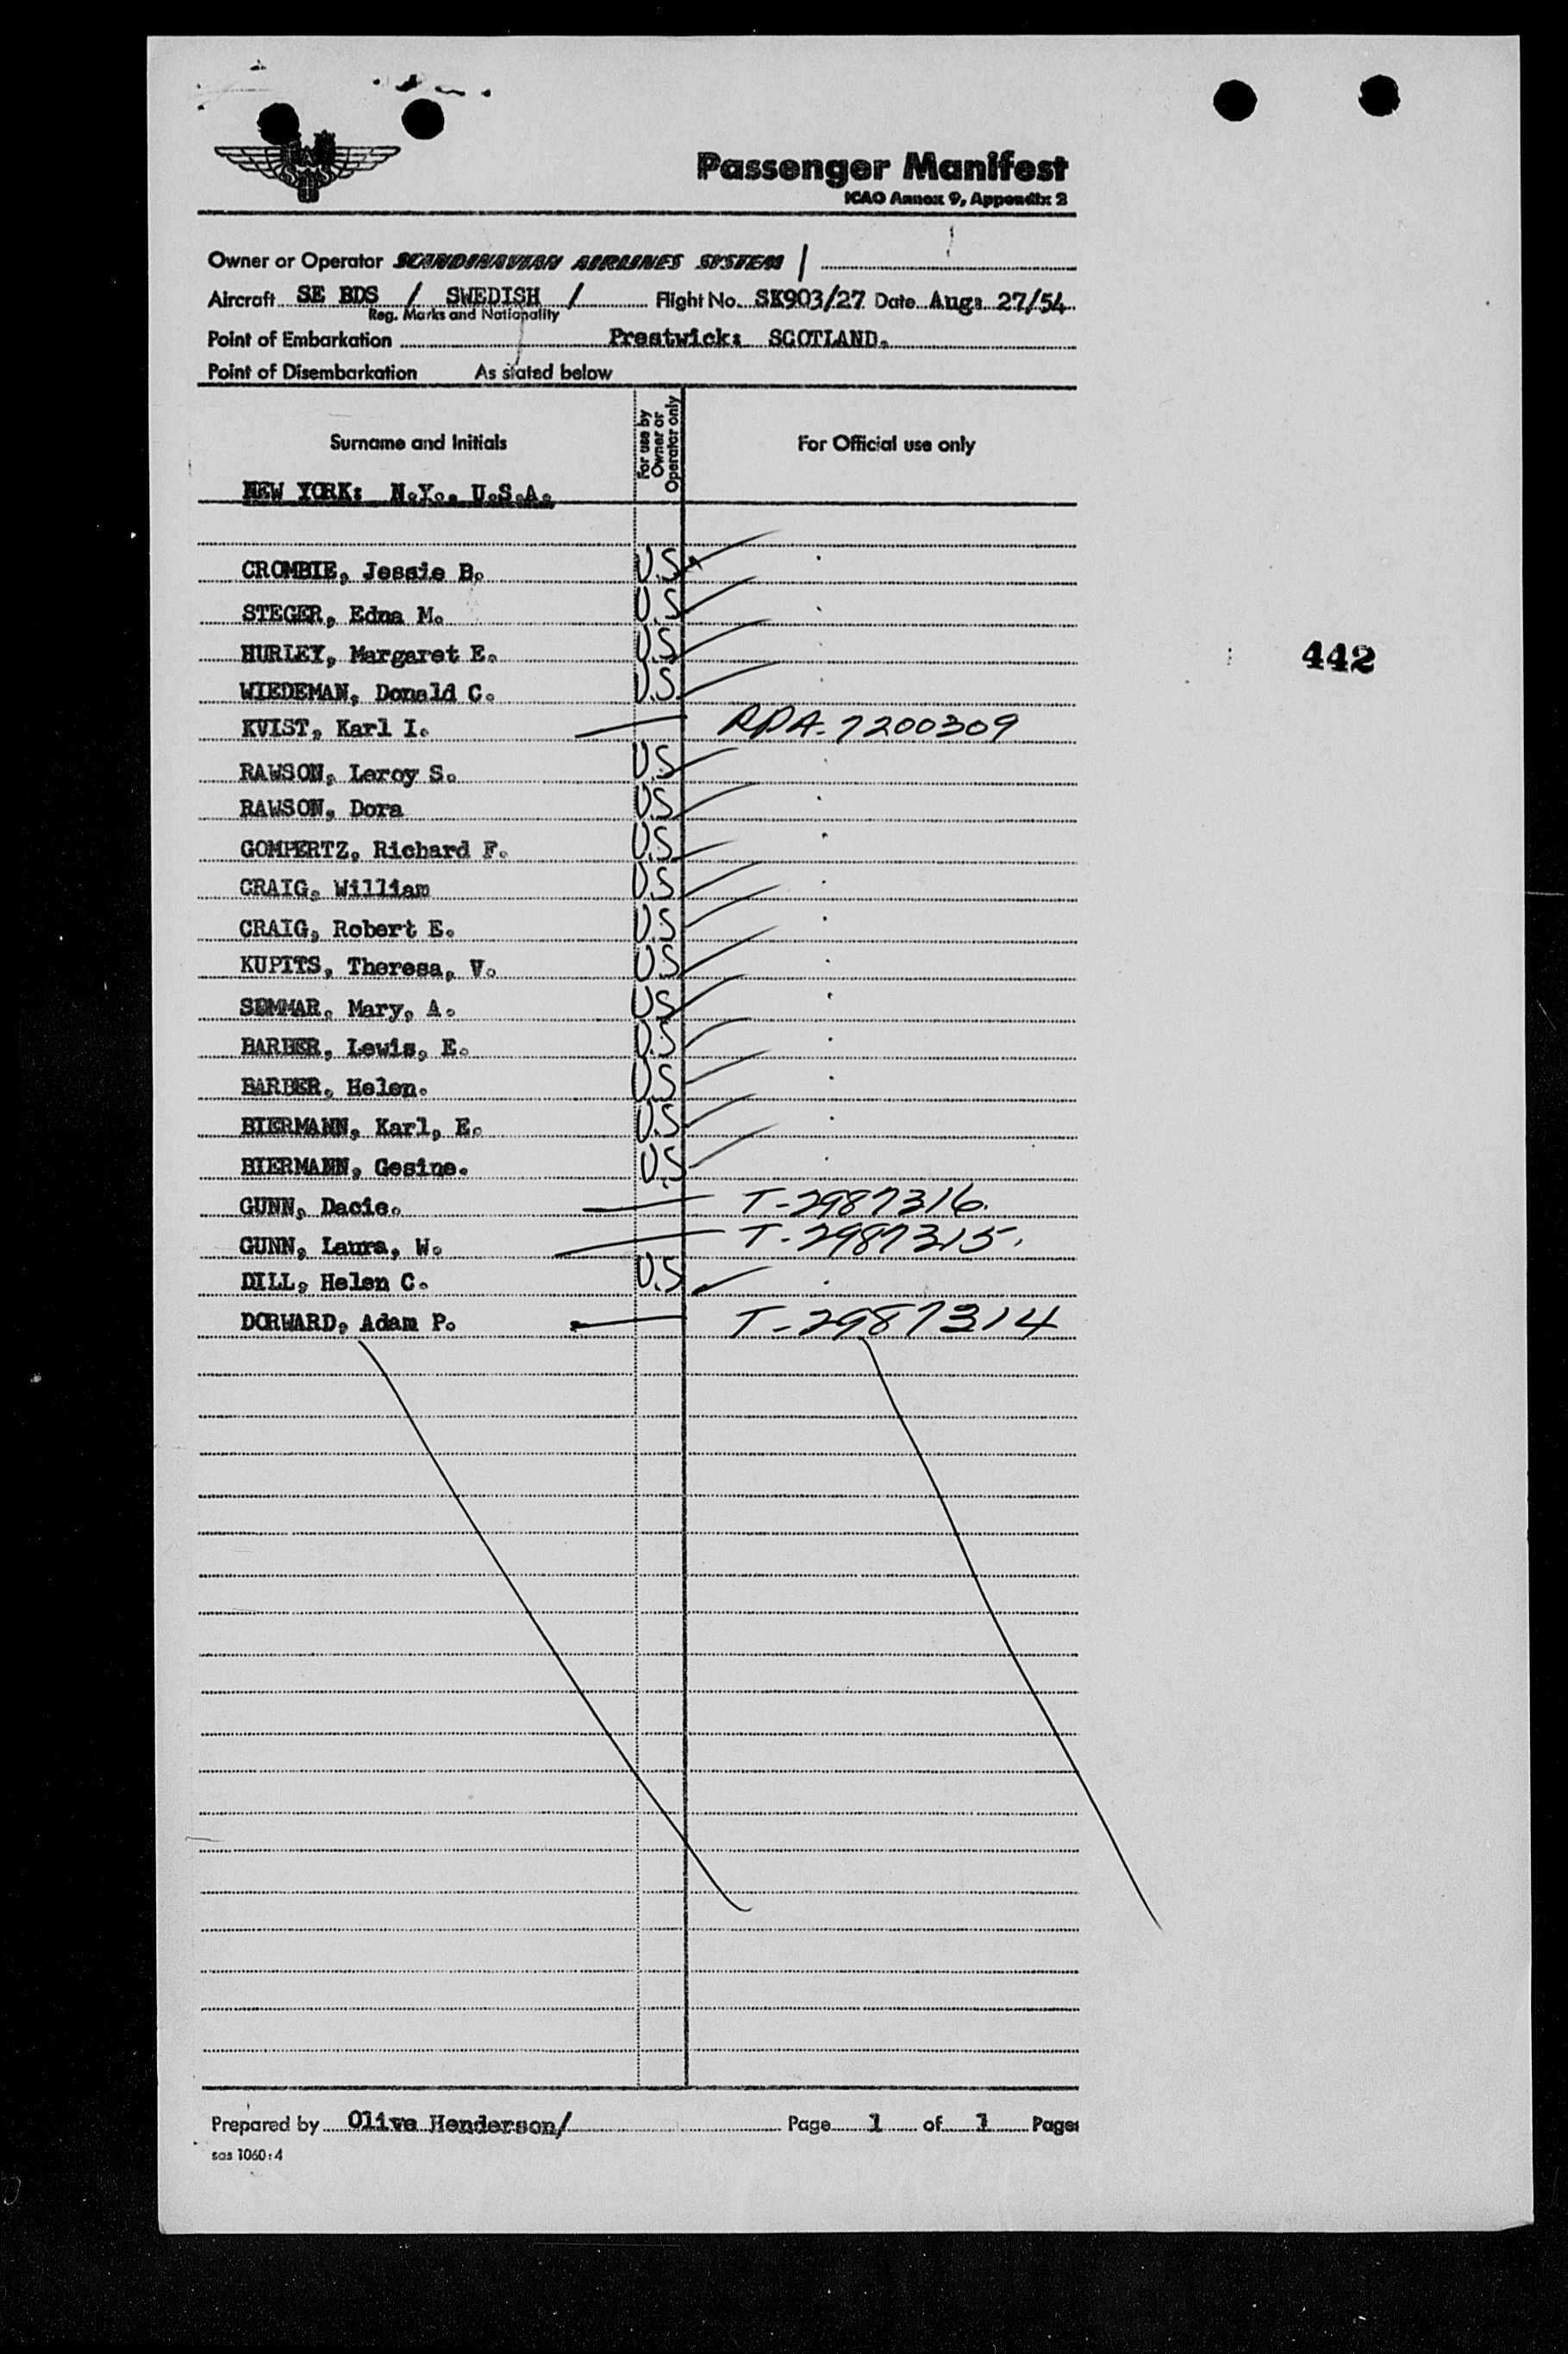 SAS
Passenger Manifest
ICAO Annex 9, Appendix 2
Owner or Operator SCANDINAVIAN AIRLINES SYSTEM /
Aircraft SE BDS / SWEDISH / Flight No. SK903/27 Date Aug: 27/54
Reg. Marks and Nationality
Point of Embarkation Prestwick: SCOTLAND.
Point of Disembarkation As stated below
Surname and Initials For use by Owner or Operator only For Official use only
NEW YORK: N.Y., U.S.A.
CROMBIE, Jessie B. U.S
STEGER, Edna M. U.S
HURLEY, Margaret E. U.S
442
WIEDEMAN, Donald C. U.S
KVIST, Karl I. RPA-7200309
RAWSON, Leroy S. U.S
RAWSON, Dora U.S
GOMPERTZ, Richard F. U.S
CRAIG, William U.S
CRAIG, Robert E. U.S
KUPITS, Theresa, V. U.S
SEMMAR, Mary, A. US
BARBER, Lewis, E. U.S
BARBER, Helen. U.S
BIERMANN, Karl, E. U.S
BIERMANN, Gesine. U.S
GUNN, Dacie. T-2987316.
GUNN, Laura, W. T-2987315.
DILL, Helen C. U.S
DORWARD, Adam P. T-2987314
Prepared by Olive Henderson/ Page 1 of 1 Pages
sas 1060:4